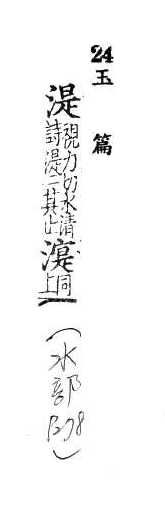 24
玉篇
湜
視力切水清
詩湜一其止
同
上
(水部 )